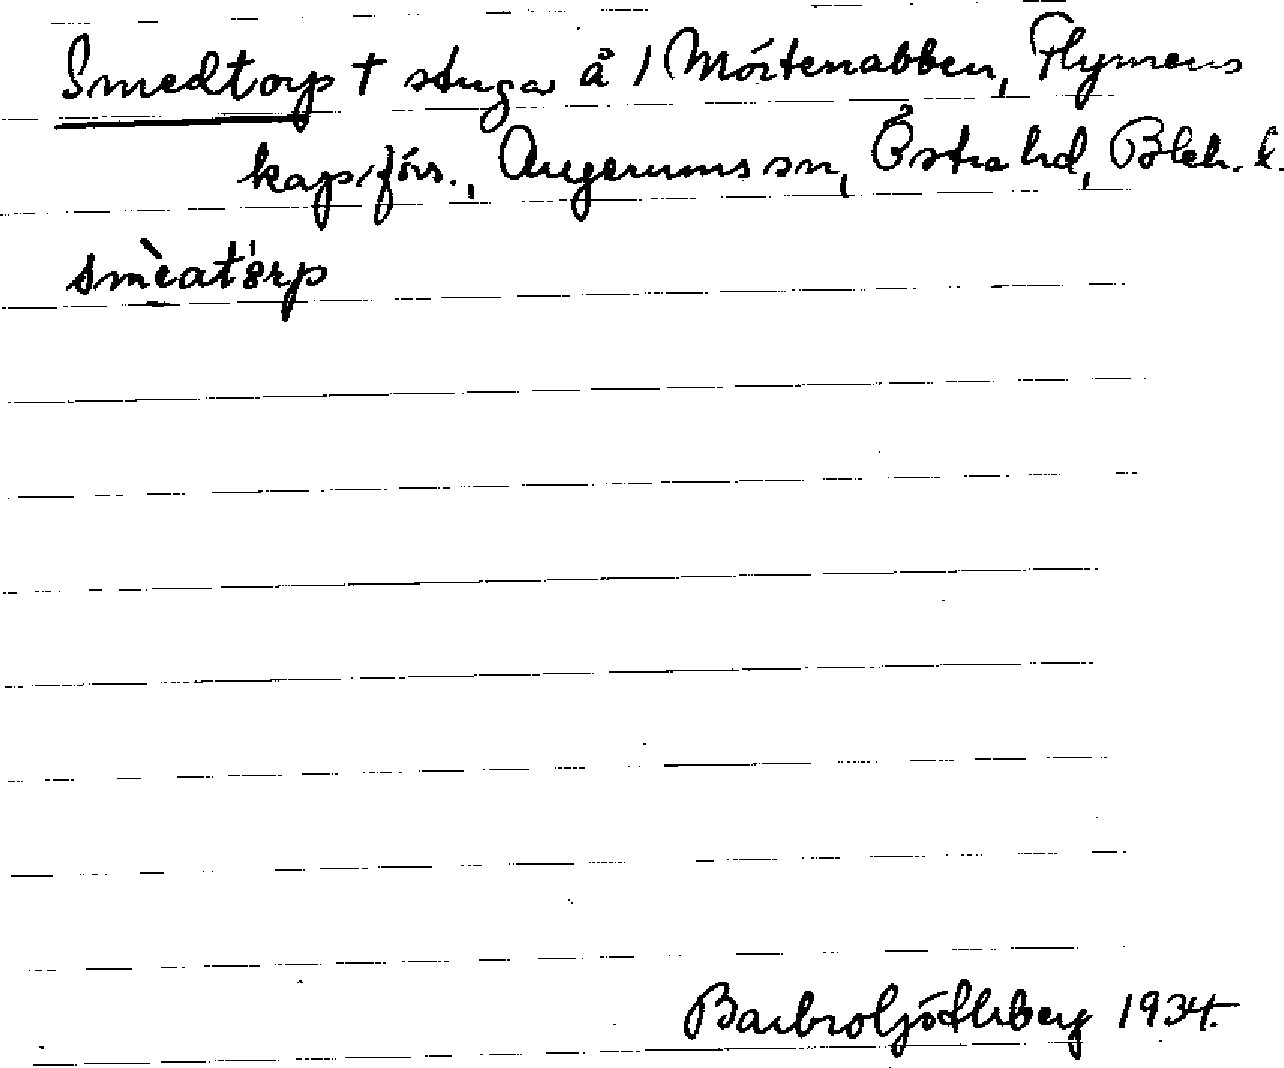 Smedtorp † stuga å 1 Mörtenabben, Flymens
kap.förs., Augerums sn, Östra hd, Blek. l.
smèat'örp
Barbro Götherberg 1934.